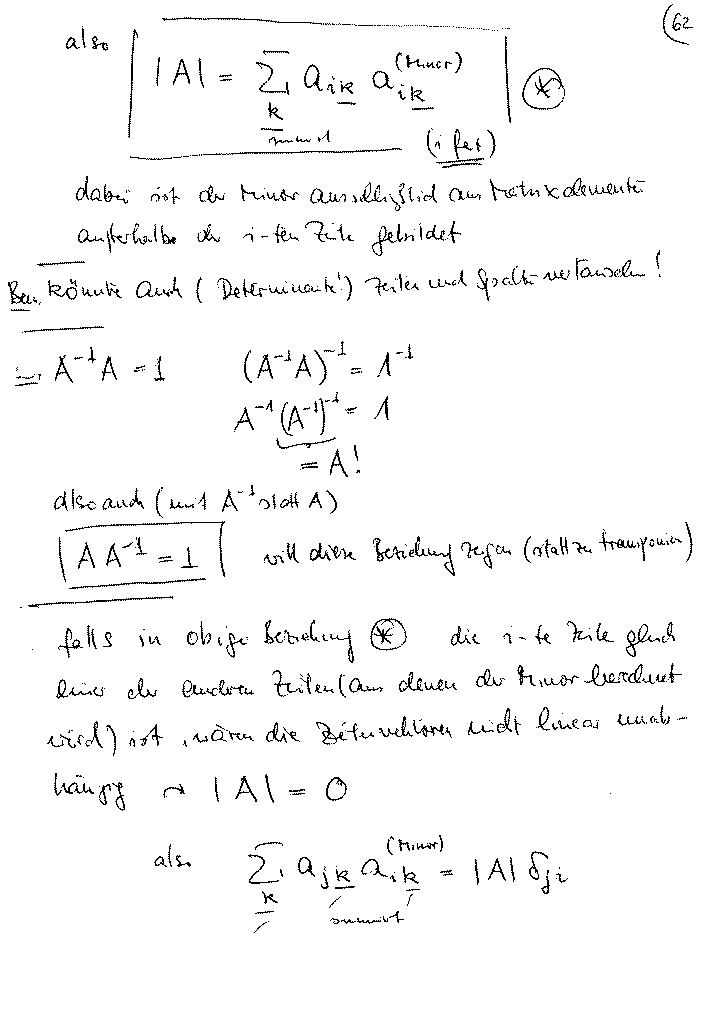 (62
also |A| = ∑_k a_{ik} a_{ik}^{(Minor)} (*)
summiert
(i fest)
dabei ist der Minor ausschließlich aus Matrixelementen
außerhalb der i-ten Zeile gebildet
Bem. könnte auch (Determinante!) Zeilen und Spalten vertauschen!
A^{-1}A = 1 (A^{-1}A)^{-1} = 1^{-1}
A^{-1}(A^{-1})^{-1} = 1
= A!
also auch (mit A^{-1} statt A)
A A^{-1} = 1 will diese Beziehung zeigen (statt zu transponieren)
falls in obiger Beziehung (*) die i-te Zeile gleich
einer der anderen Zeilen (aus denen der Minor berechnet
wird) ist, wären die Zeilenvektoren nicht linear unab-
hängig → |A| = 0
also ∑_k a_{jk} a_{ik}^{(Minor)} = |A| δ_{ji}
summiert